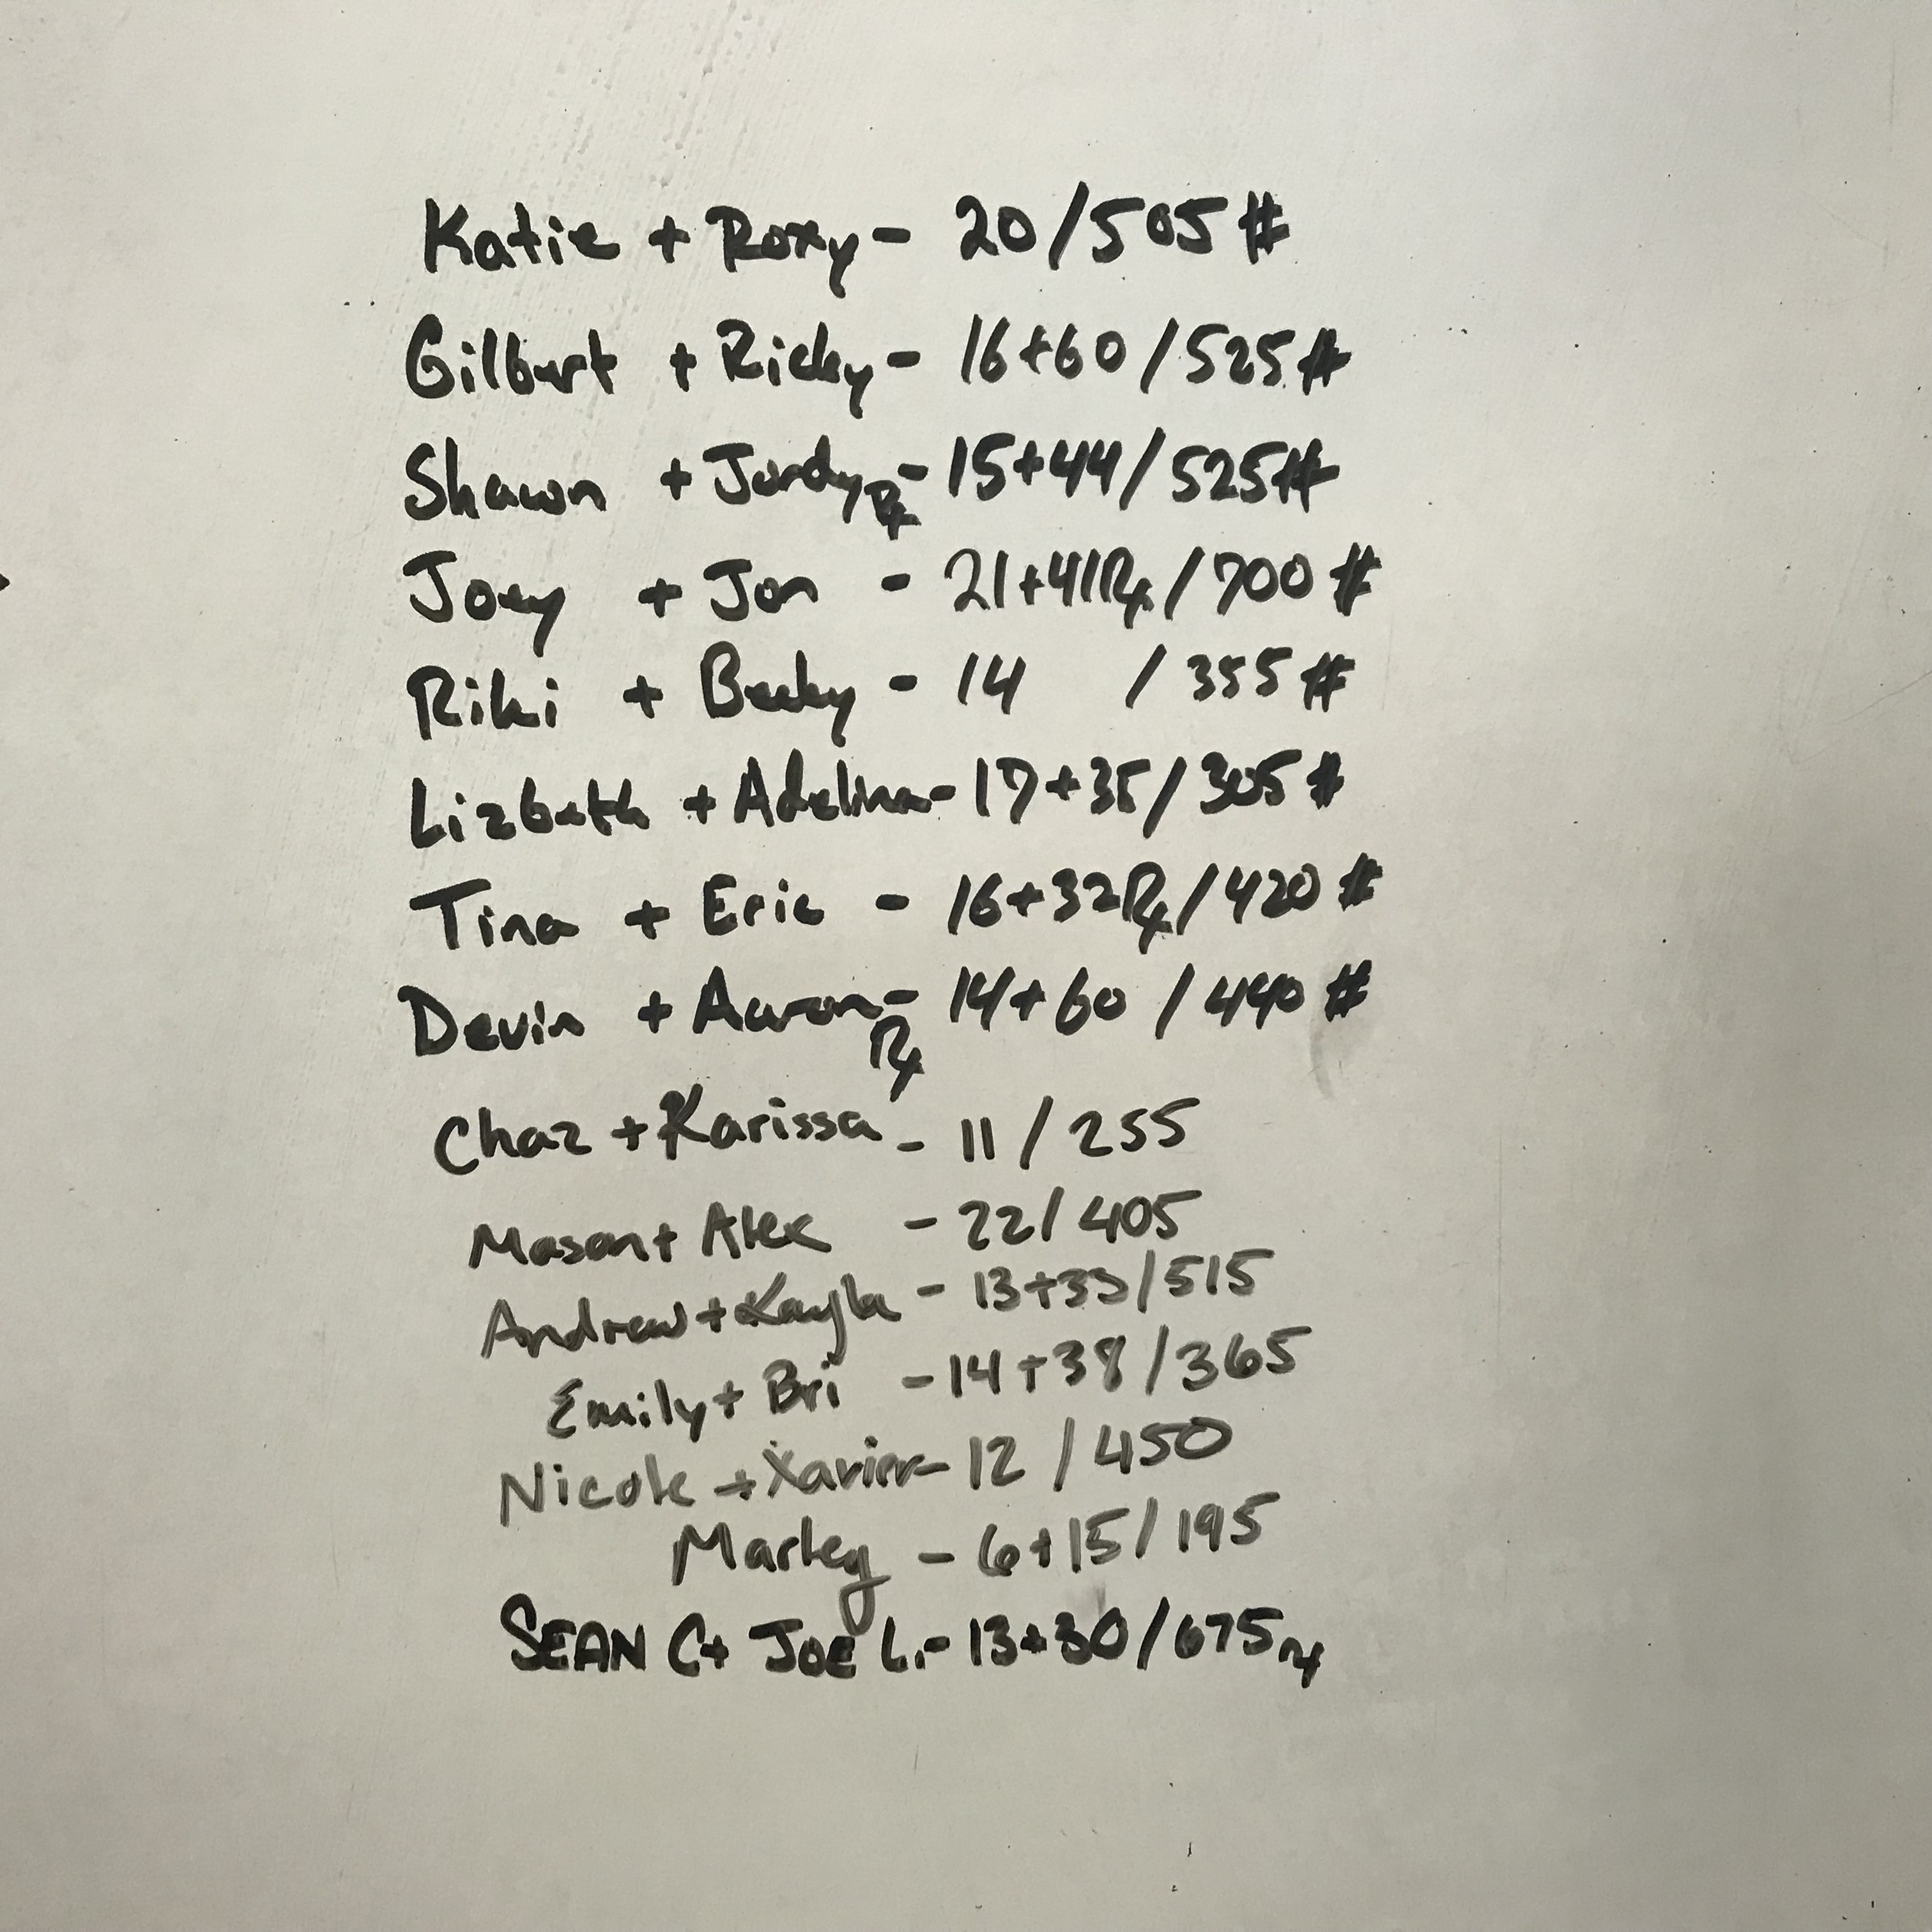 Katie + Roxy - 20/505 #
Gilbert + Ricky - 16+60/525 #
Shawn + Jordy Rx - 15+44/525 #
Joey + Jon - 21+41Rx/700 #
Riki + Becky - 14 /355 #
Lizbeth + Adelina - 17+35/305 #
Tina + Eric - 16+32Rx/420 #
Devin + Aaron Rx - 14+60/440 #
Chaz + Karissa - 11/255
Mason + Alex - 22/405
Andrew + Kayla - 13+33/515
Emily + Bri - 14+38/365
Nicole + Xavier - 12/450
Marley - 6+15/195
SEAN C + JOE L. - 13+30/675 rx